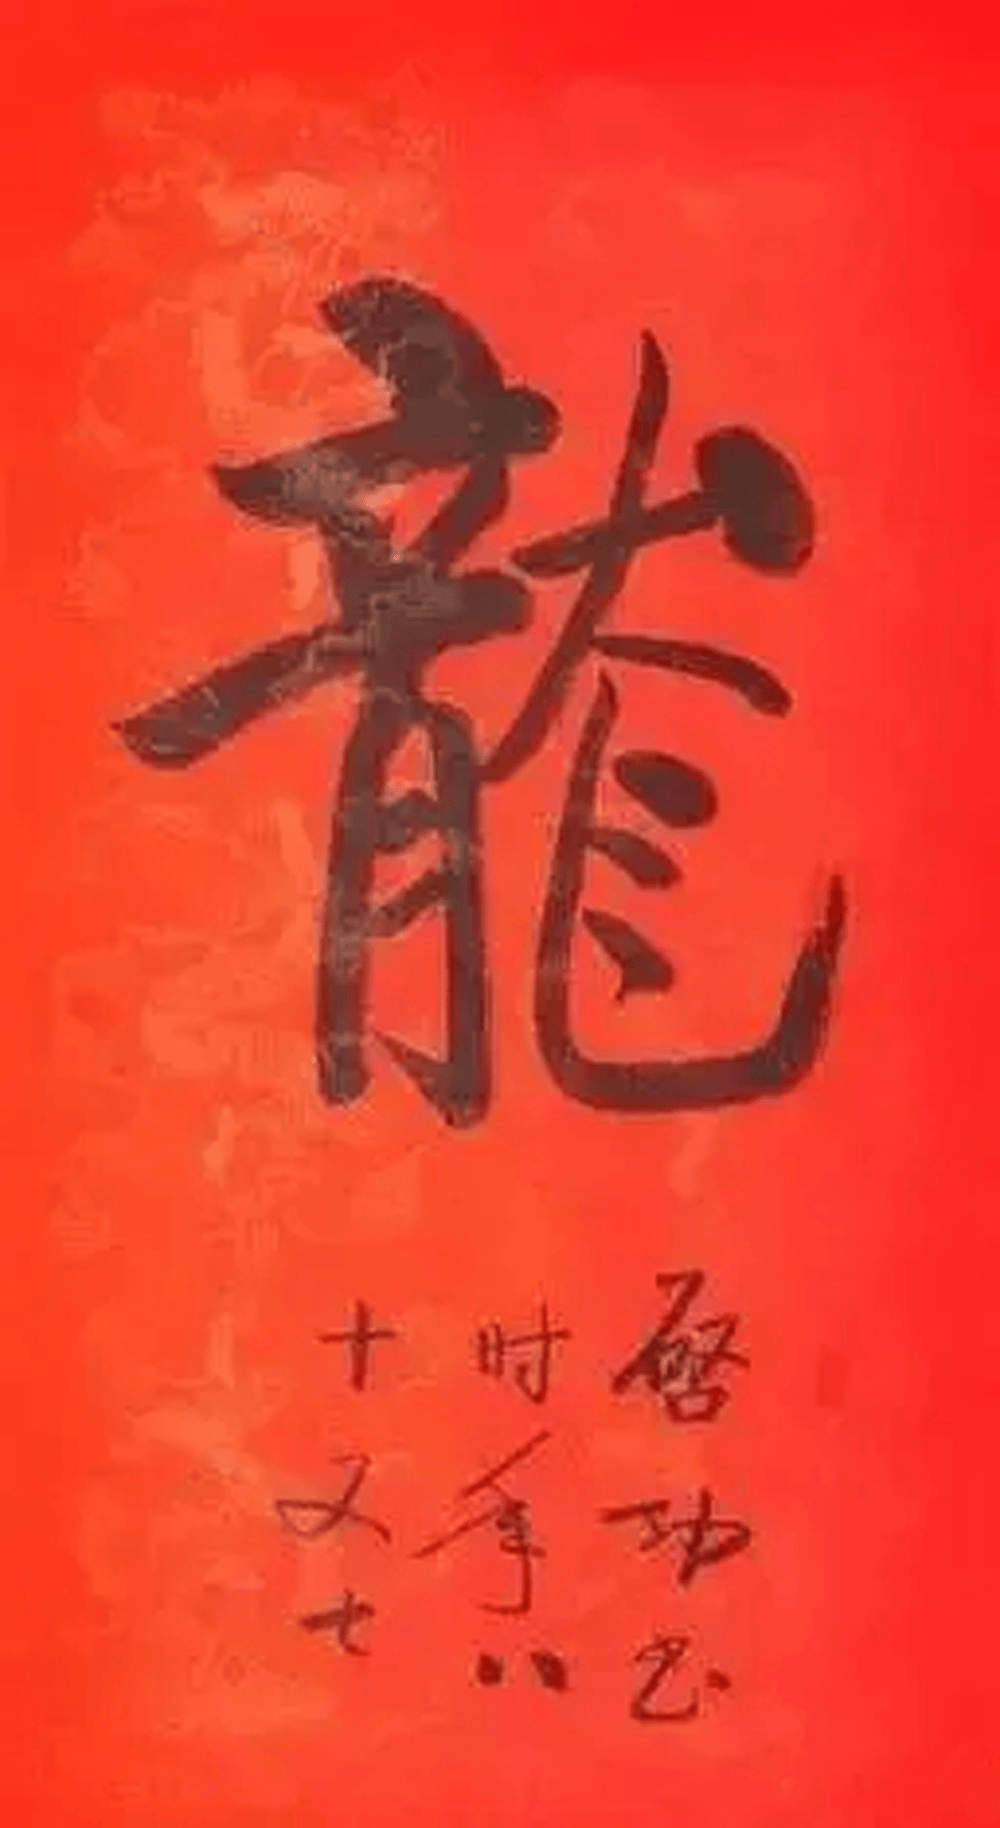 龍
启功书
时年八
十又七